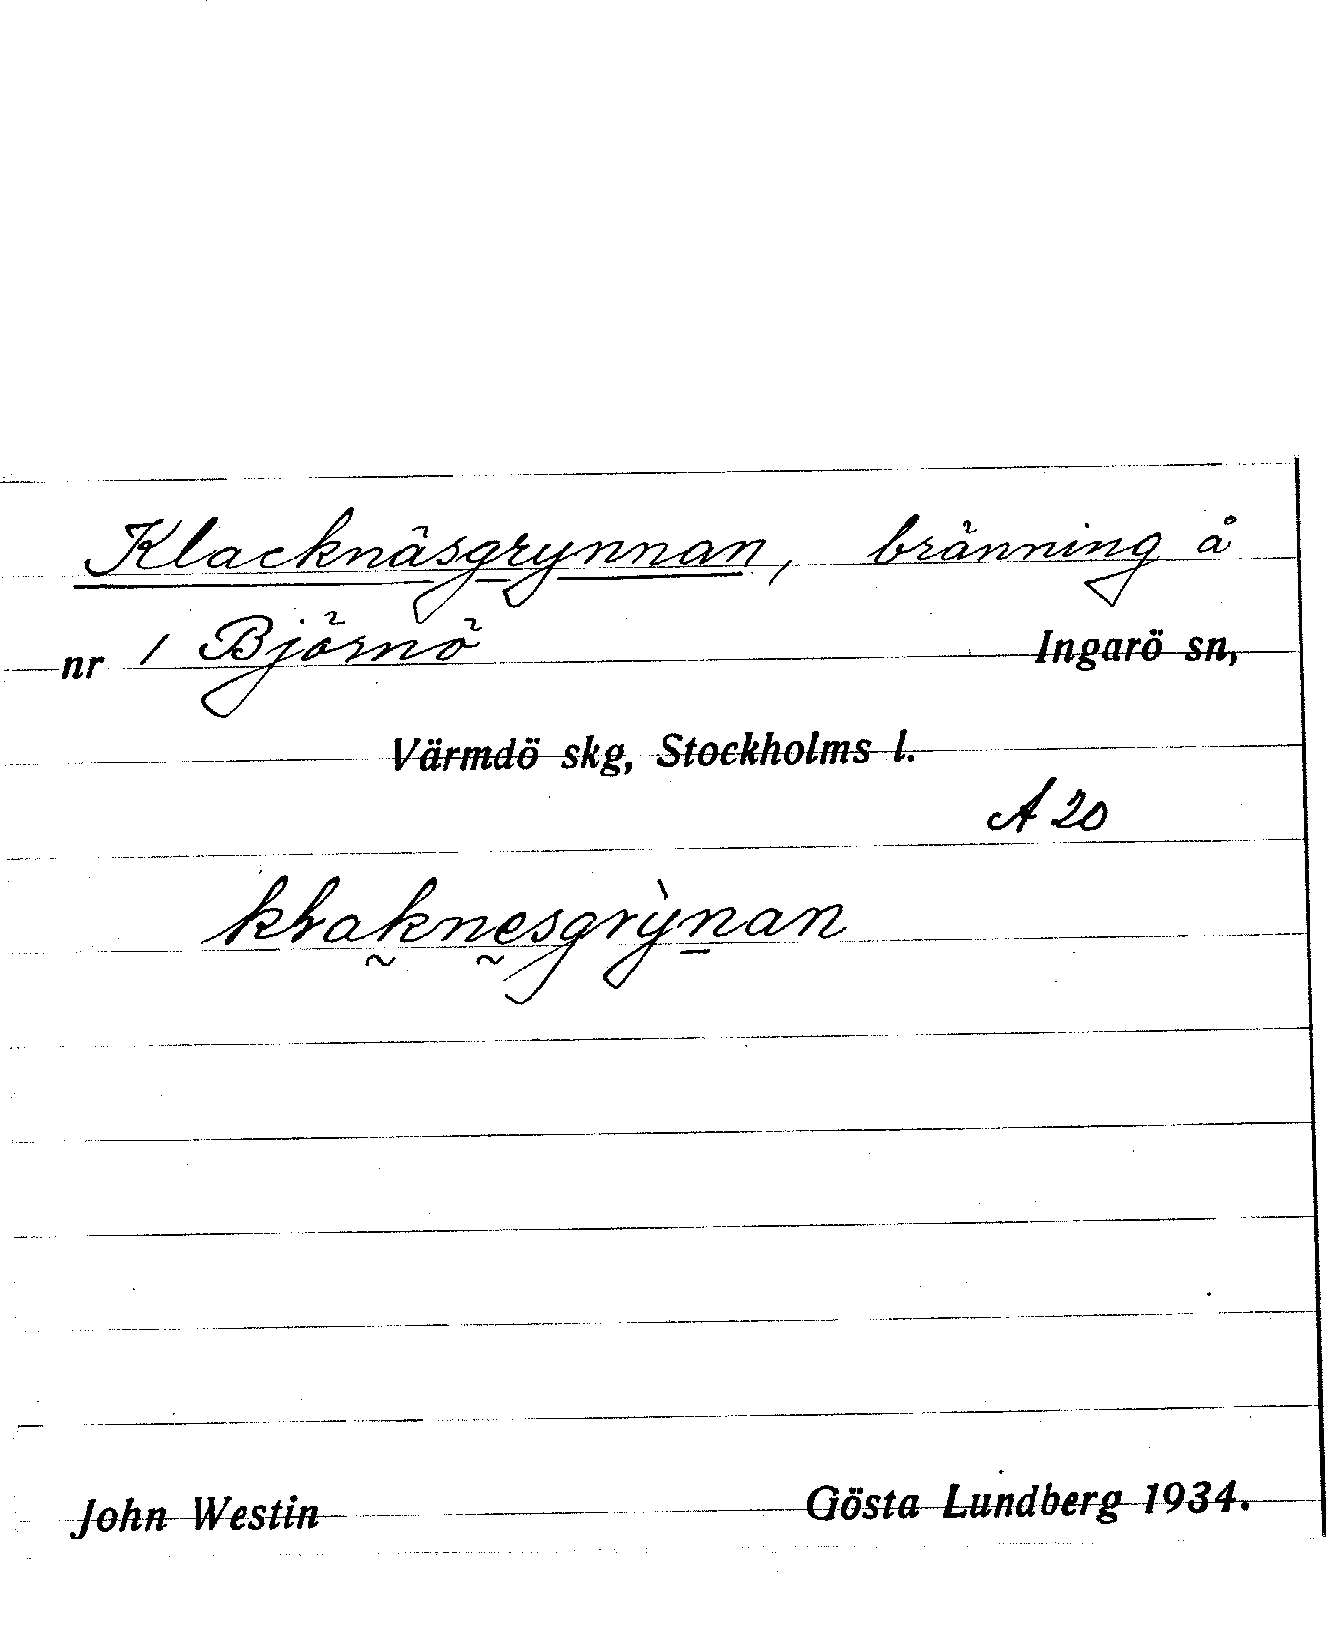 Klacknäsgrynnan, bränning å
nr 1 Björnö Ingarö sn,
Värmdö skg, Stockholms l.
A 20
John Westin Gösta Lundberg 1934.